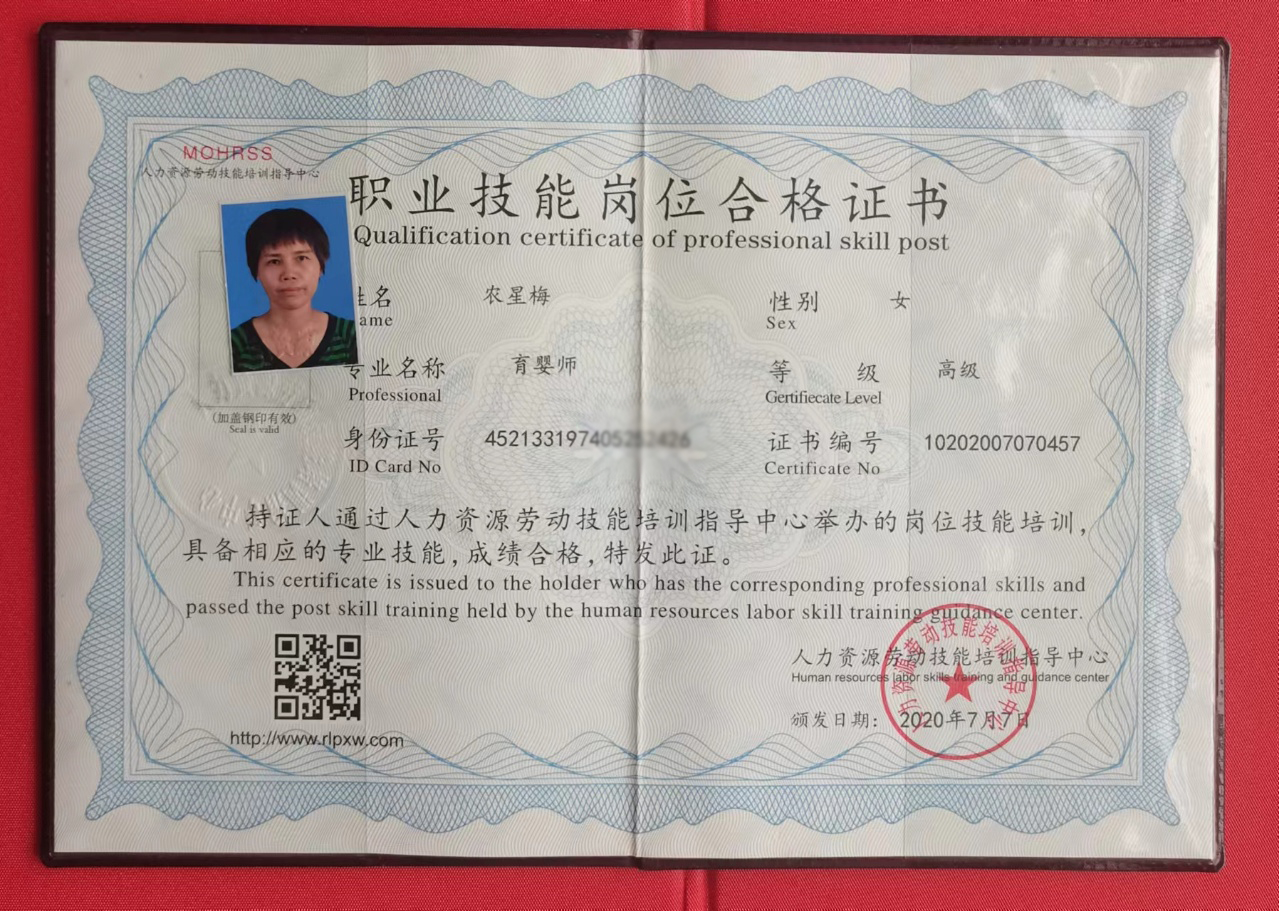 MOHRSS
人力资源劳动技能培训指导中心
职业技能岗位合格证书
Qualification certificate of professional skill post
姓名 农星梅 性别 女
ame Sex
专业名称 育婴师 等级 高级
Professional Gertifiecate Level
(加盖钢印有效)
Seal is valid
身份证号 证书编号 10202007070457
ID Card No Certificate No
持证人通过人力资源劳动技能培训指导中心举办的岗位技能培训,
具备相应的专业技能,成绩合格,特发此证。
This certificate is issued to the holder who has the corresponding professional skills and
passed the post skill training held by the human resources labor skill training guidance center.
人力资源劳动技能培训指导中心
Human resources labor skills training and guidance center
颁发日期: 2020年7月7日
http://www.rlpxw.com